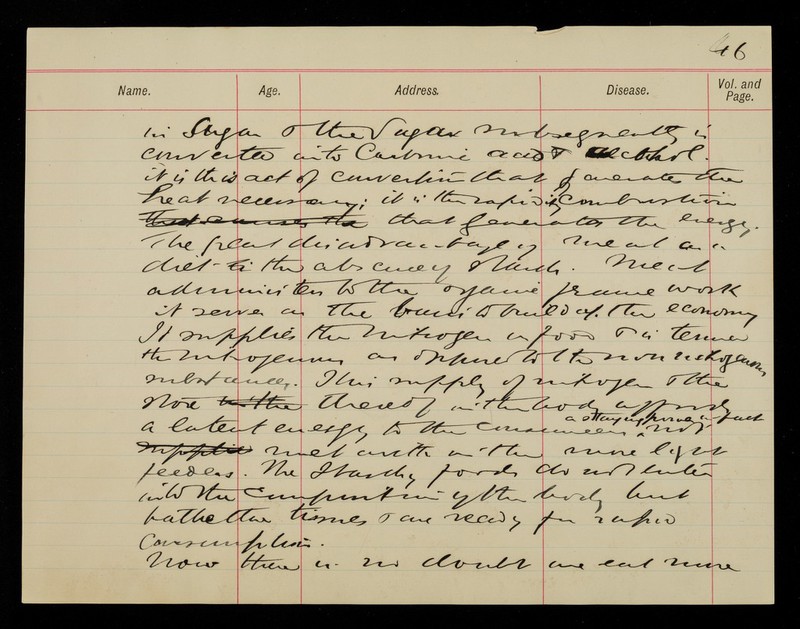 46
Name. Age. Address. Disease. Vol. and Page.
in Sugar & the Sugar subsequently is
converted into Carbonic acid & alcohol.
it is this act of convertion that generates the
heat necessary; it is the rapidity combustion
that causes the that generates the energy.
The great disadvantage of meat as a
diet is the absence of starch. Meat
administers to the organic frame work
it serves as the basis to build up the economy
It supplies the Nitrogen in food & is termed
the nitrogenous as opposed to the non nitrogenous
substances. This supply of nitrogen & the
store in the thereof in the body affords
a staying power in fact
a latent energy to the consumers, not
supplied met with in the more light
feeders. The Starchy foods do not enter
into the composition of the body but
bathe the tissues & are ready for rapid
Consumption.
Now there is no doubt we eat more